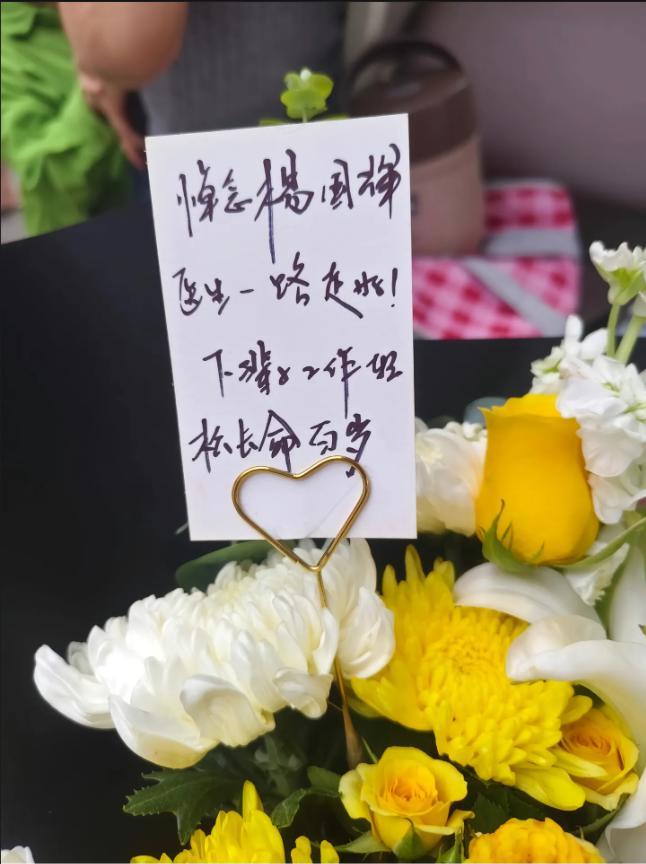 悼念杨国雄
医生一路走好！
下辈子工作轻
松长命百岁